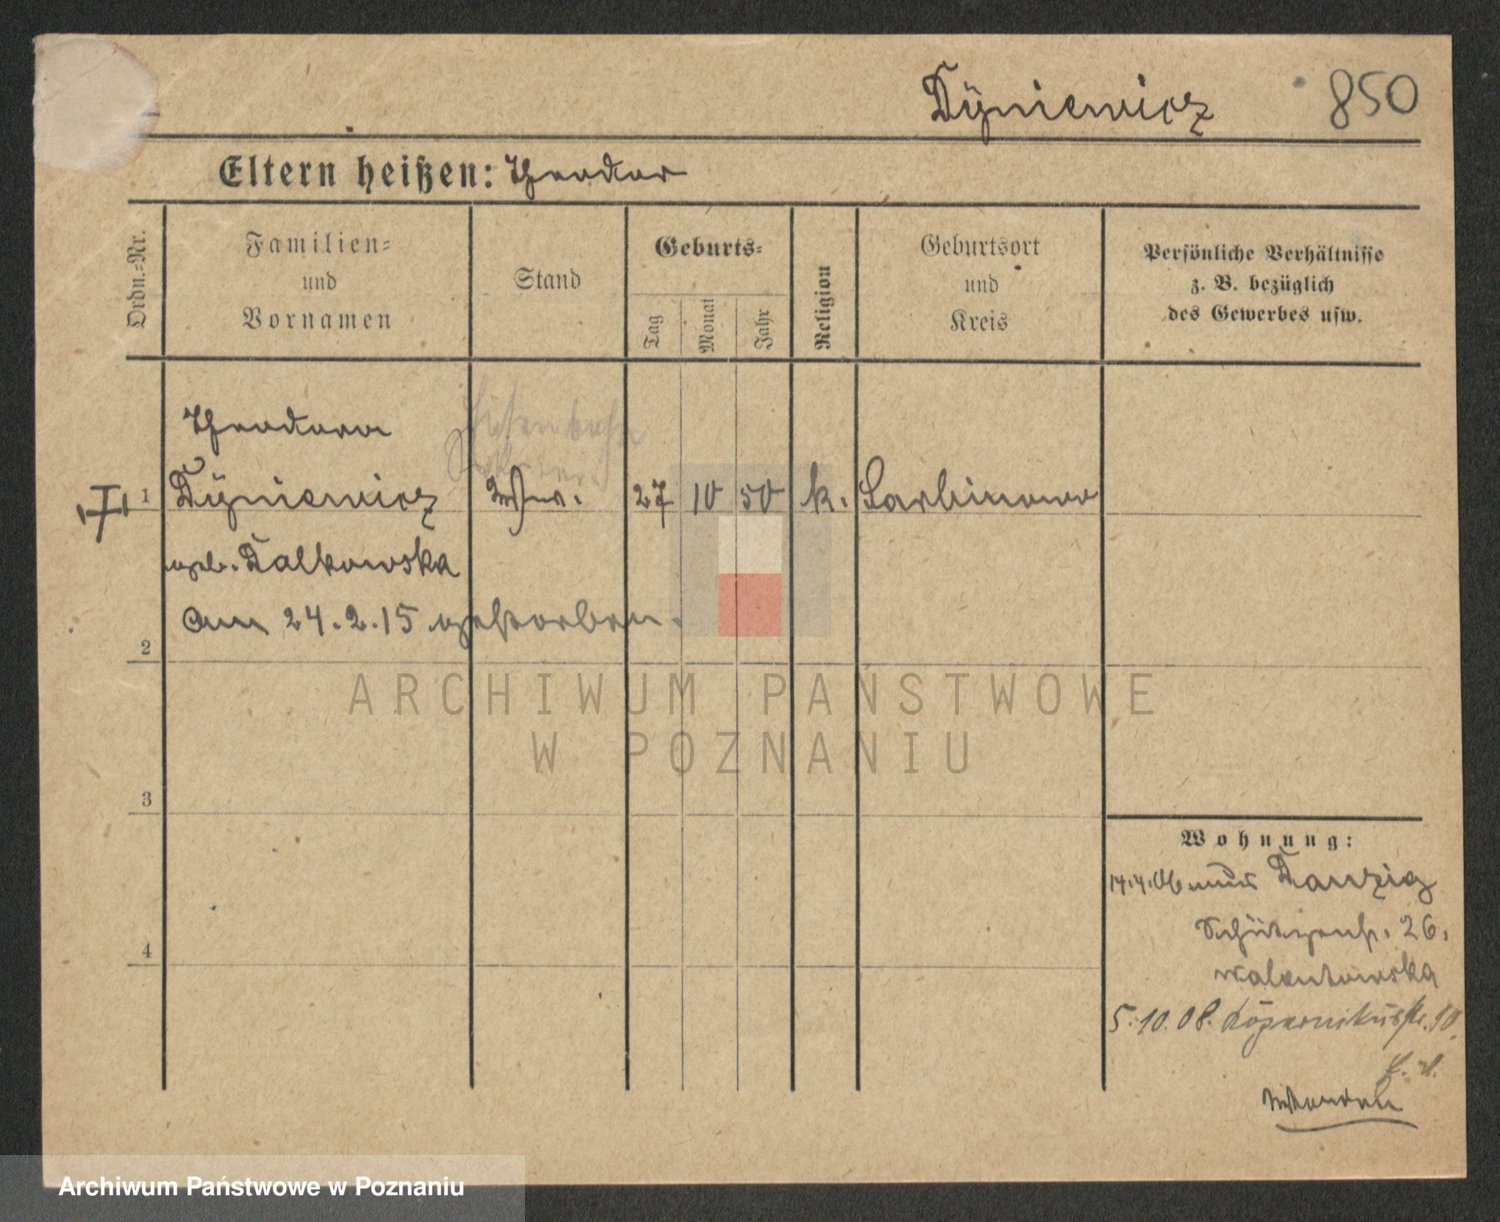 Dyniewicz 850
Eltern heißen: Theodor
Ordn.=Nr.
Familien=
und
Vornamen
Stand
Geburts=
Tag
Monat
Jahr
Religion
Geburtsort
und
Kreis
Persönliche Verhältnisse
z. B. bezüglich
des Gewerbes usw.
Theodora
Eisenbahn
1 Dyniewicz Wwe. 27 10 50 k. Sarbinowo
geb. Dalkowska
Am 24.2.15 gestorben.
2
ARCHIWUM PAŃSTWOWE
W POZNANIU
3
4
Wohnung:
14.4.06 aus Danzig
Schützenstr. 26.
Walentowska
5.10.08. Kopernikusstr. 10.
Wenden
Archiwum Państwowe w Poznaniu